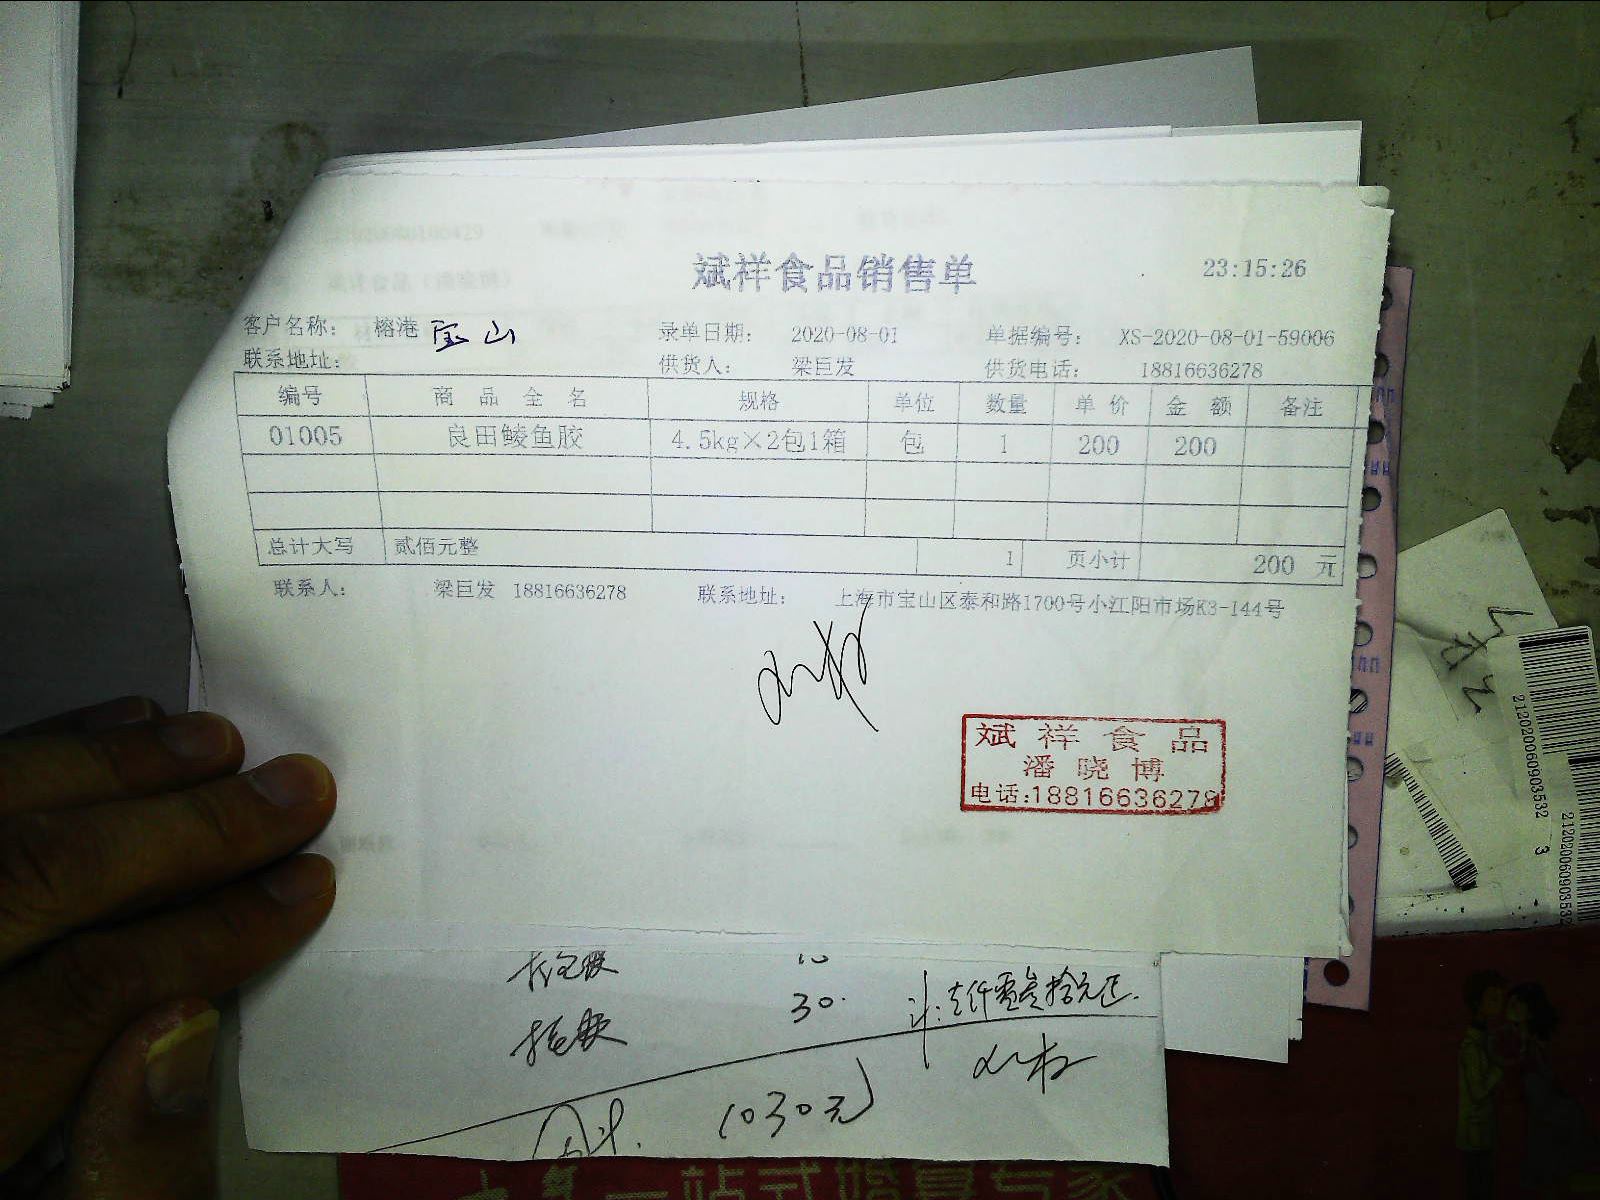 斌祥食品销售单 23:15:26
客户名称: 榕港 宝山 录单日期: 2020-08-01 单据编号: XS-2020-08-01-59006
联系地址: 供货人: 梁巨发 供货电话: 18816636278
编号 商品全名 规格 单位 数量 单价 金额 备注
01005 良田鲮鱼胶 4.5kg×2包1箱 包 1 200 200
总计大写 贰佰元整 1 页小计 200 元
联系人: 梁巨发 18816636278 联系地址: 上海市宝山区泰和路1700号小江阳市场K3-144号
斌祥食品
潘晓博
电话:18816636278
30.
1030元
212020060903532 3
212020060903532
一站式婚宴专家